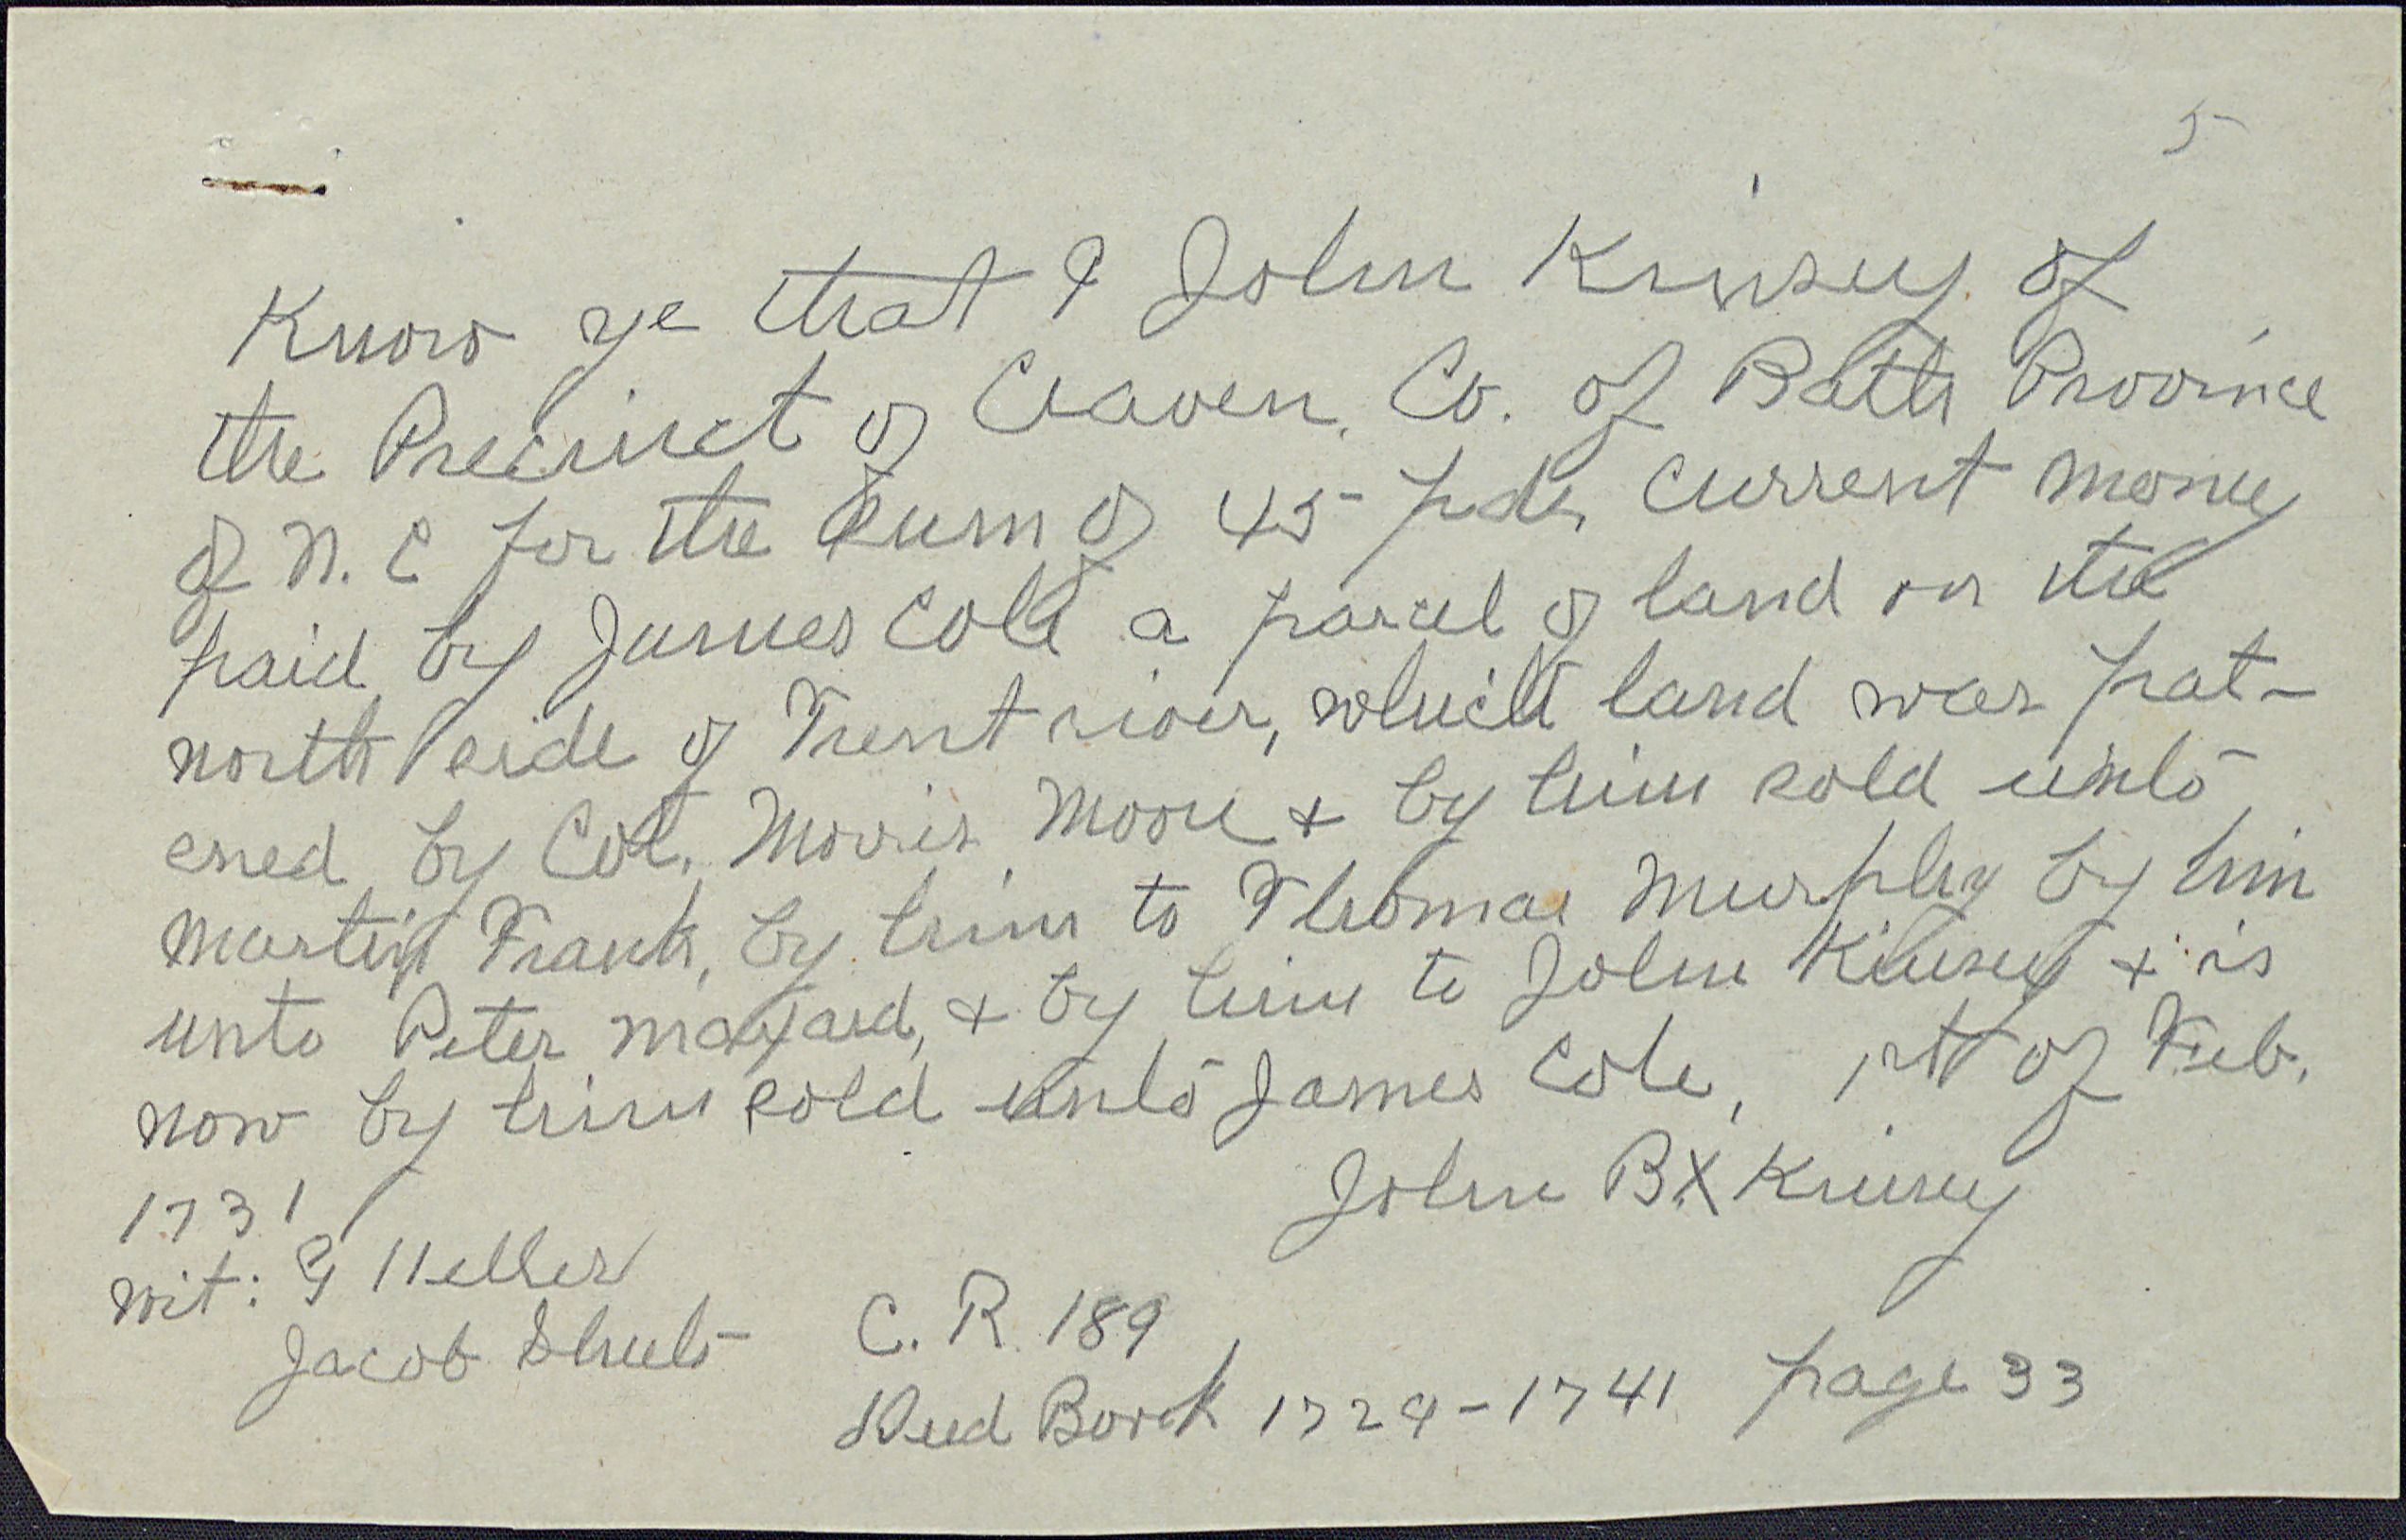 5
Know ye that I John Kinsey of
the Precinct of Craven, Co. of Bath Province
of N. C for the sum of 45 pds current money
paid by James Cole a parcel of land on the
north side of Trent river, which land was pat-
ened by Col. Morris Moore + by him sold unto
Martin Frank, by him to Thomas Murphy by him
unto Peter , + by him to John Kinsey + is
now by him sold unto James Cole, 1st of Feb.
1731
John B X Kinsey
Wit: G Heller
Jacob
C. R. 189
Deed Book 1729-1741 page 33